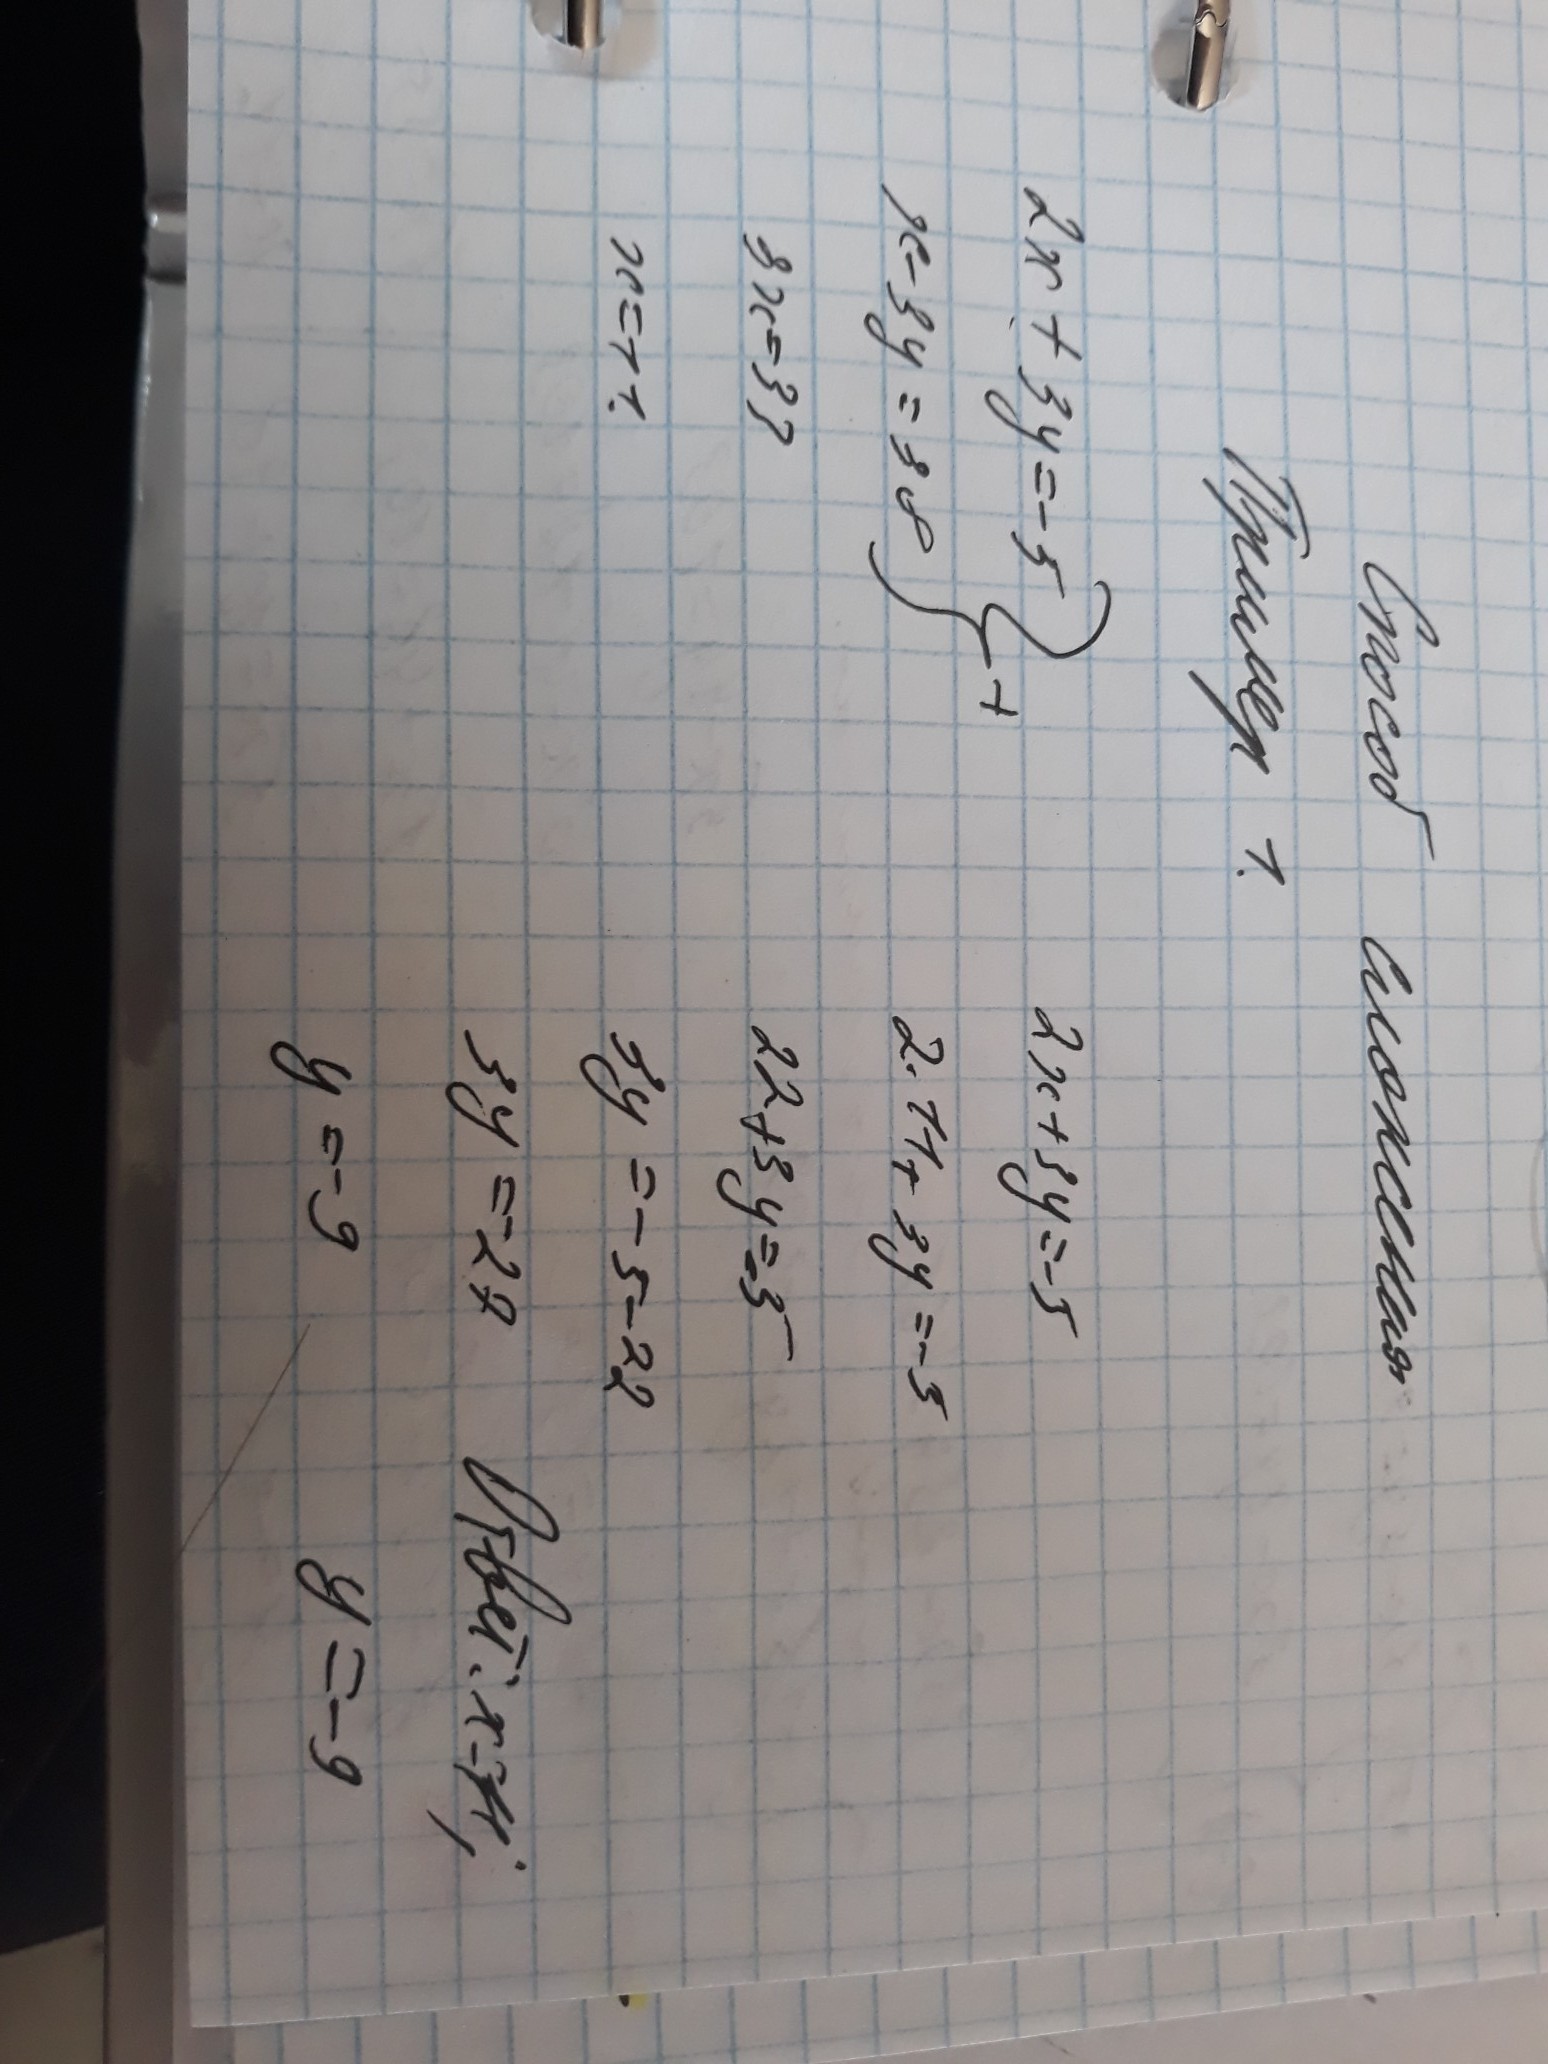 Способ сложения
Пример 1.
2x + 3y = -5
x - 3y = 38
+
3x = 33
x = 11.
2x + 3y = -5
2·11 + 3y = -5
22 + 3y = -5
3y = -5 - 22
3y = -27
y = -9
Ответ: x = 11;
y = -9